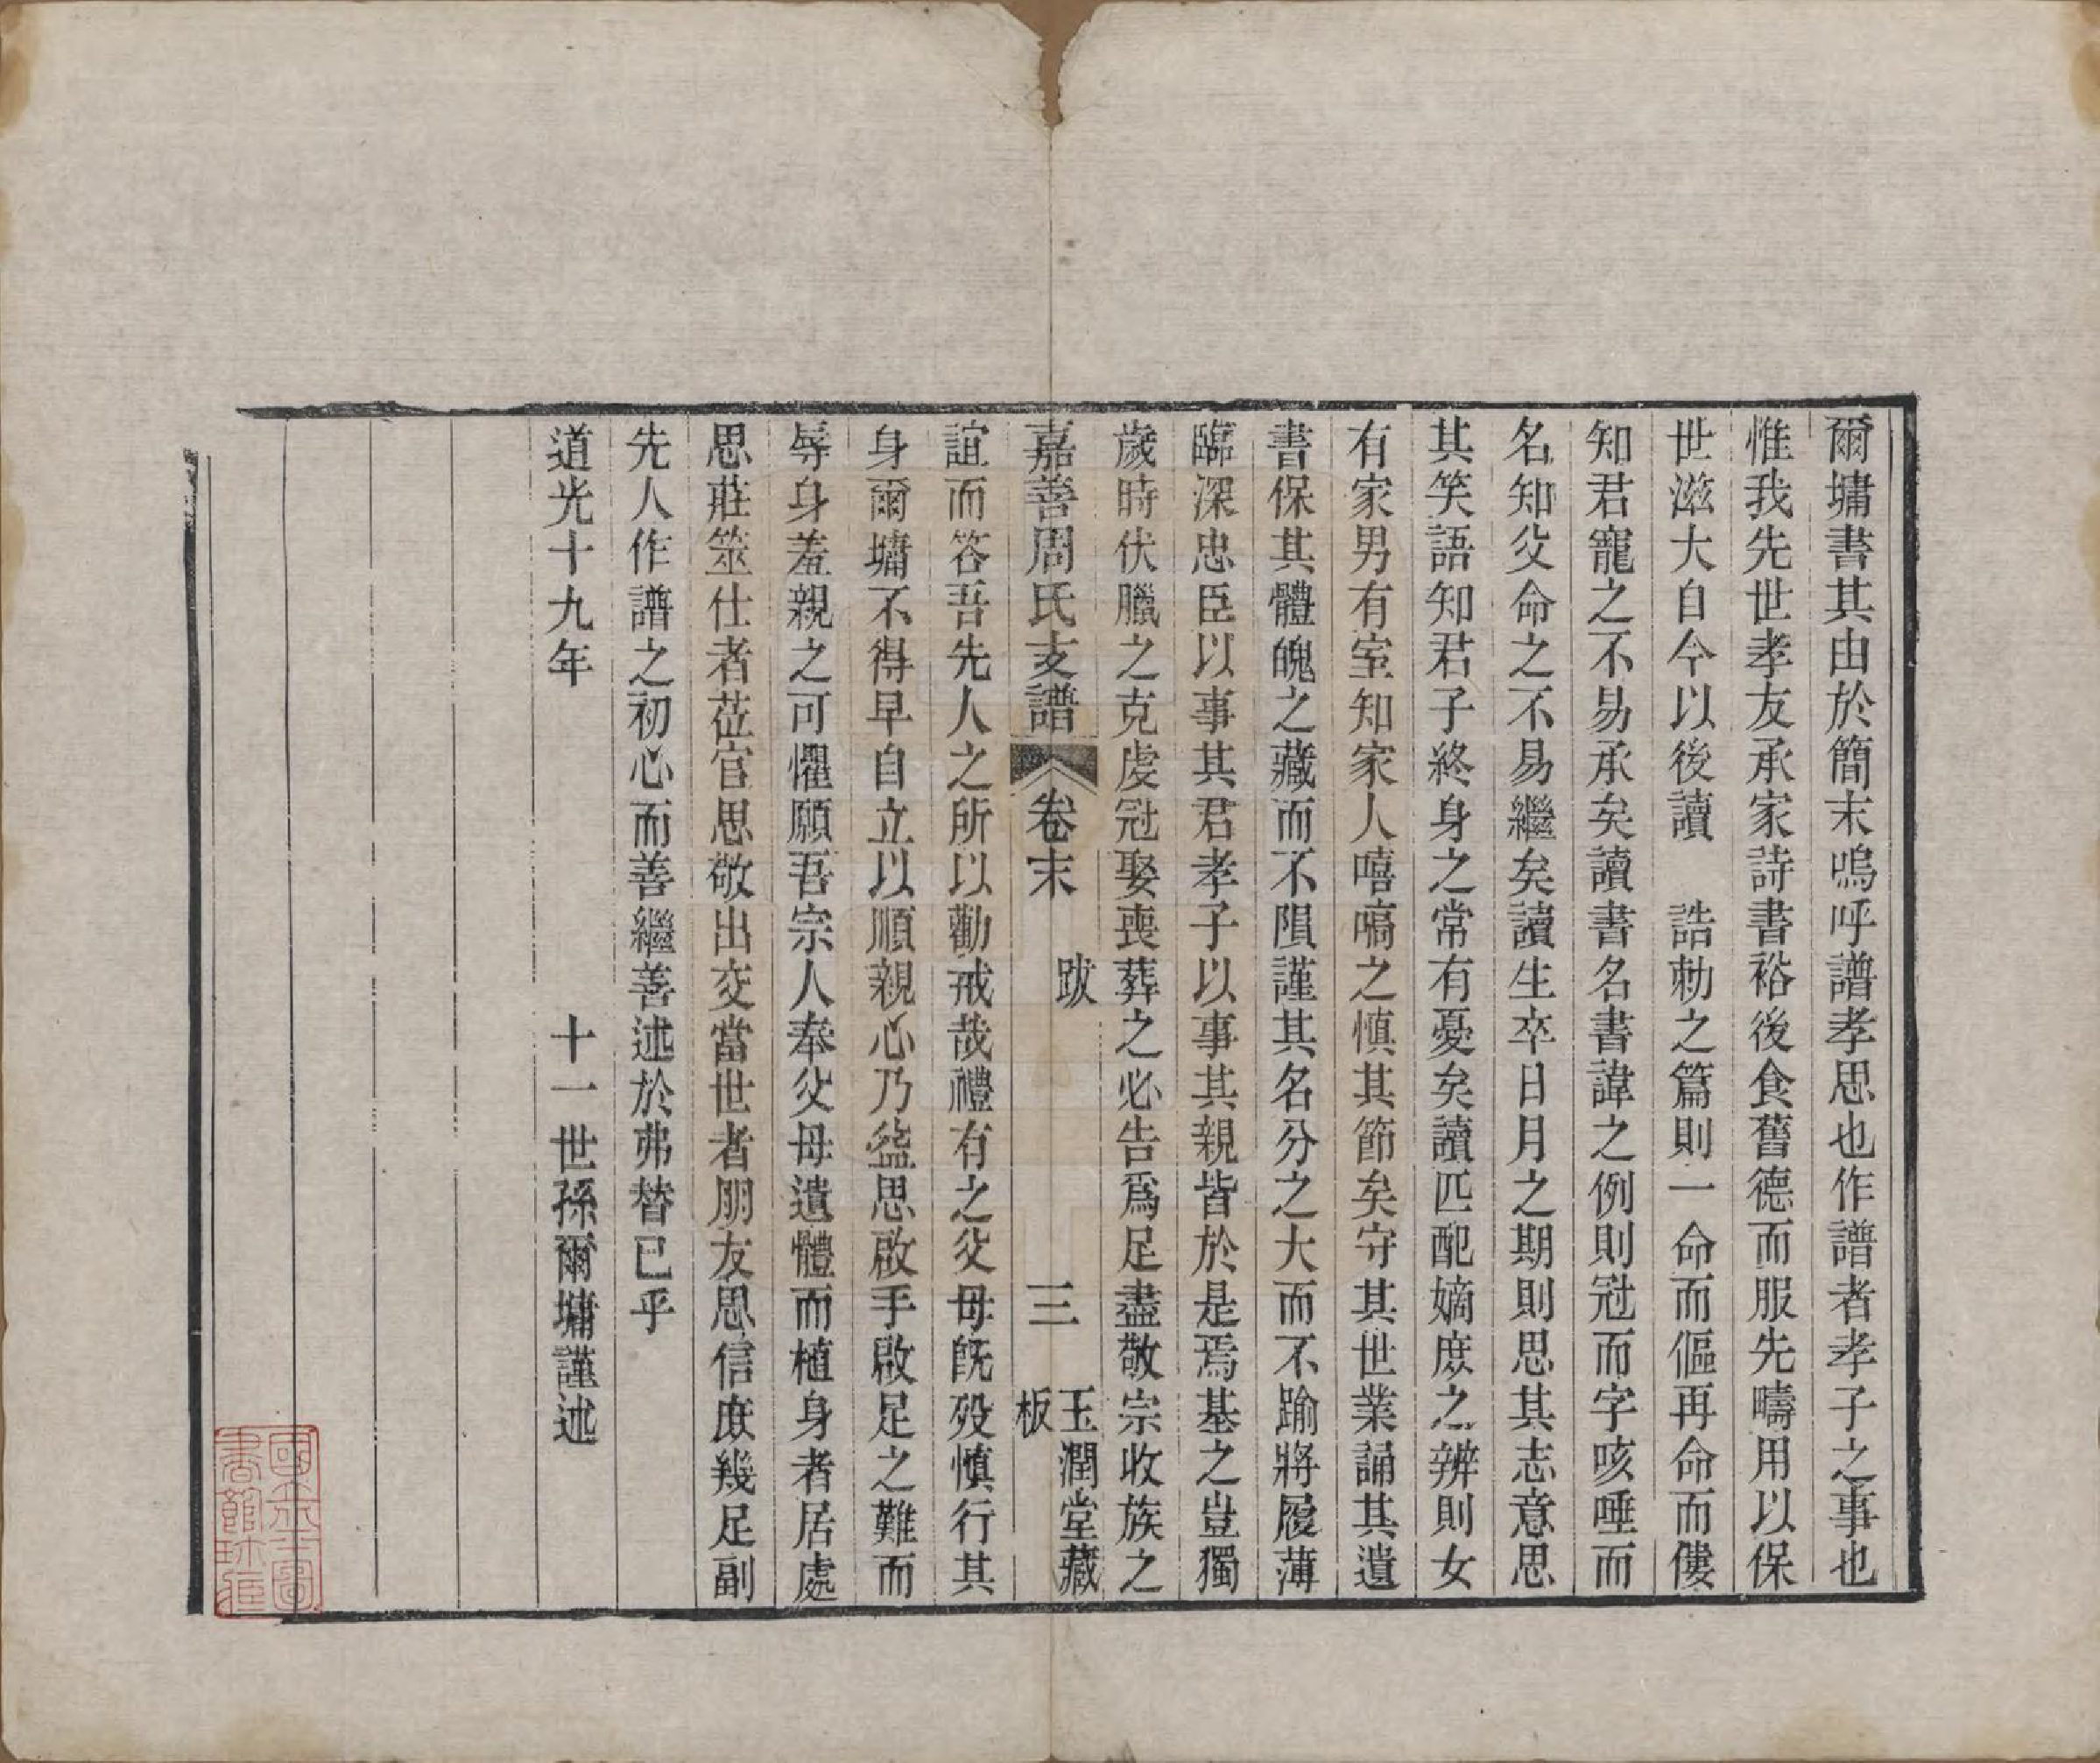 爾墉書其由於簡末嗚呼譜孝思也作譜者孝子之事也
惟我先世孝友承家詩書裕後食舊德而服先疇用以保
世滋大自今以後讀　誥勅之篇則一命而傴再命而僂
知君寵之不易承矣讀書名書諱之例則冠而字咳唾而
名知父命之不易繼矣讀生卒日月之期則思其志意思
其笑語知君子終身之常有憂矣讀匹配嫡庶之辨則女
有家男有室知家人嘻嗃之慎其節矣守其世業誦其遺
書保其體魄之藏而不隕謹其名分之大而不踰將履薄
臨深忠臣以事其君孝子以事其親皆於是焉基之豈獨
歲時伏臘之克虔冠娶喪葬之必告爲足盡敬宗收族之
嘉善周氏支譜　卷末　跋　三　玉潤堂藏板
誼而答吾先人之所以勸戒哉禮有之父母旣歿慎行其
身爾墉不得早自立以順親心乃益思啟手啟足之難而
辱身羞親之可懼願吾宗人奉父母遺體而植身者居處
思莊筮仕者莅官思敬出交當世者朋友思信庶幾足副
先人作譜之初心而善繼善述於弗替已乎
道光十九年　十一世孫爾墉謹述